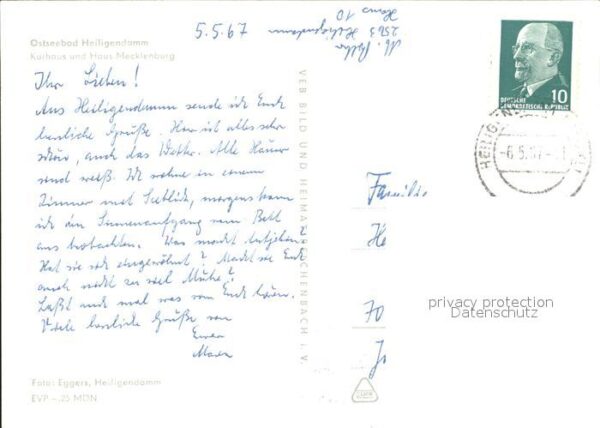 5.5.67
2563 Heiligendamm
Haus 10
Ostseebad Heiligendamm
Kurhaus und Haus Mecklenburg
Ihr Lieben!
Aus Heiligendamm sende ich Euch
herzliche Grüße. Hier ist alles sehr
schön, auch das Wetter. Alle Häuser
sind weiß. Wir wohnen in einem
Zimmer mit Seeblick, morgens kann
ich den Sonnenaufgang vom Bett
aus beobachten. Was macht
Hat sie sich eingewöhnt? Macht sie Euch
auch nicht zu viel Mühe?
Laßt mich mal was von Euch hören.
Viele herzliche Grüße von
Eurer
Foto: Eggers, Heiligendamm
EVP –,25 MDN
VEB BILD UND HEIMAT REICHENBACH I. V.
DEUTSCHE
DEMOKRATISCHE REPUBLIK
10
-6.5.67
Familie
He
70
Jo
privacy protection
Datenschutz